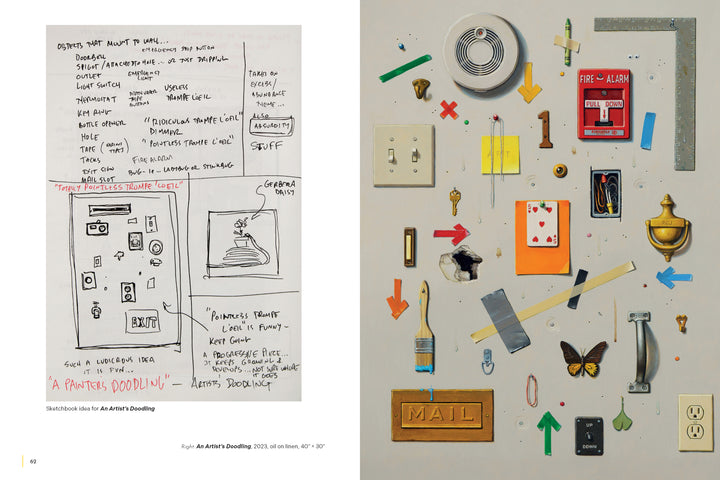 OBJECTS THAT MOUNT TO WALL...
EMERGENCY STOP BUTTON
DOORBELL
SPIGOT / ATTACHED TO HOSE... OR JUST DRIPPING
OUTLET
EMERGENCY LIGHT
LIGHT SWITCH
USELESS
THERMOSTAT
TAPE
TROMPE L'OEIL
KEY RING
BOTTLE OPENER
"RIDICULOUS TROMPE L'OEIL"
DIMMER
HOLE
TAPE
"POINTLESS TROMPE L'OEIL"
TACKS
FIRE ALARM
EXIT SIGN
BUG - IE - LADYBUG OR STINKBUG
MAIL SLOT
TAKES ON
EXCESS/
ABUNDANCE
THEME...
ALSO
ABSURDITY
STUFF
"TOTALLY POINTLESS TROMPE L'OEIL"
EXIT
GERBERA
DAISY
"POINTLESS TROMPE
L'OEIL" IS FUNNY -
KEEP GOING
A PROGRESSIVE PIECE...
IT KEEPS GROWING &
DEVELOPS... NOT SURE WHERE
IT GOES
SUCH A LUDICROUS IDEA
IT IS FUN...
"A PAINTERS DOODLING" - ARTISTS' DOODLING
Sketchbook idea for An Artist's Doodling
Right: An Artist's Doodling, 2023, oil on linen, 40" × 30"
62
FIRE ALARM
PULL DOWN
1
5
MAIL
UP
DOWN